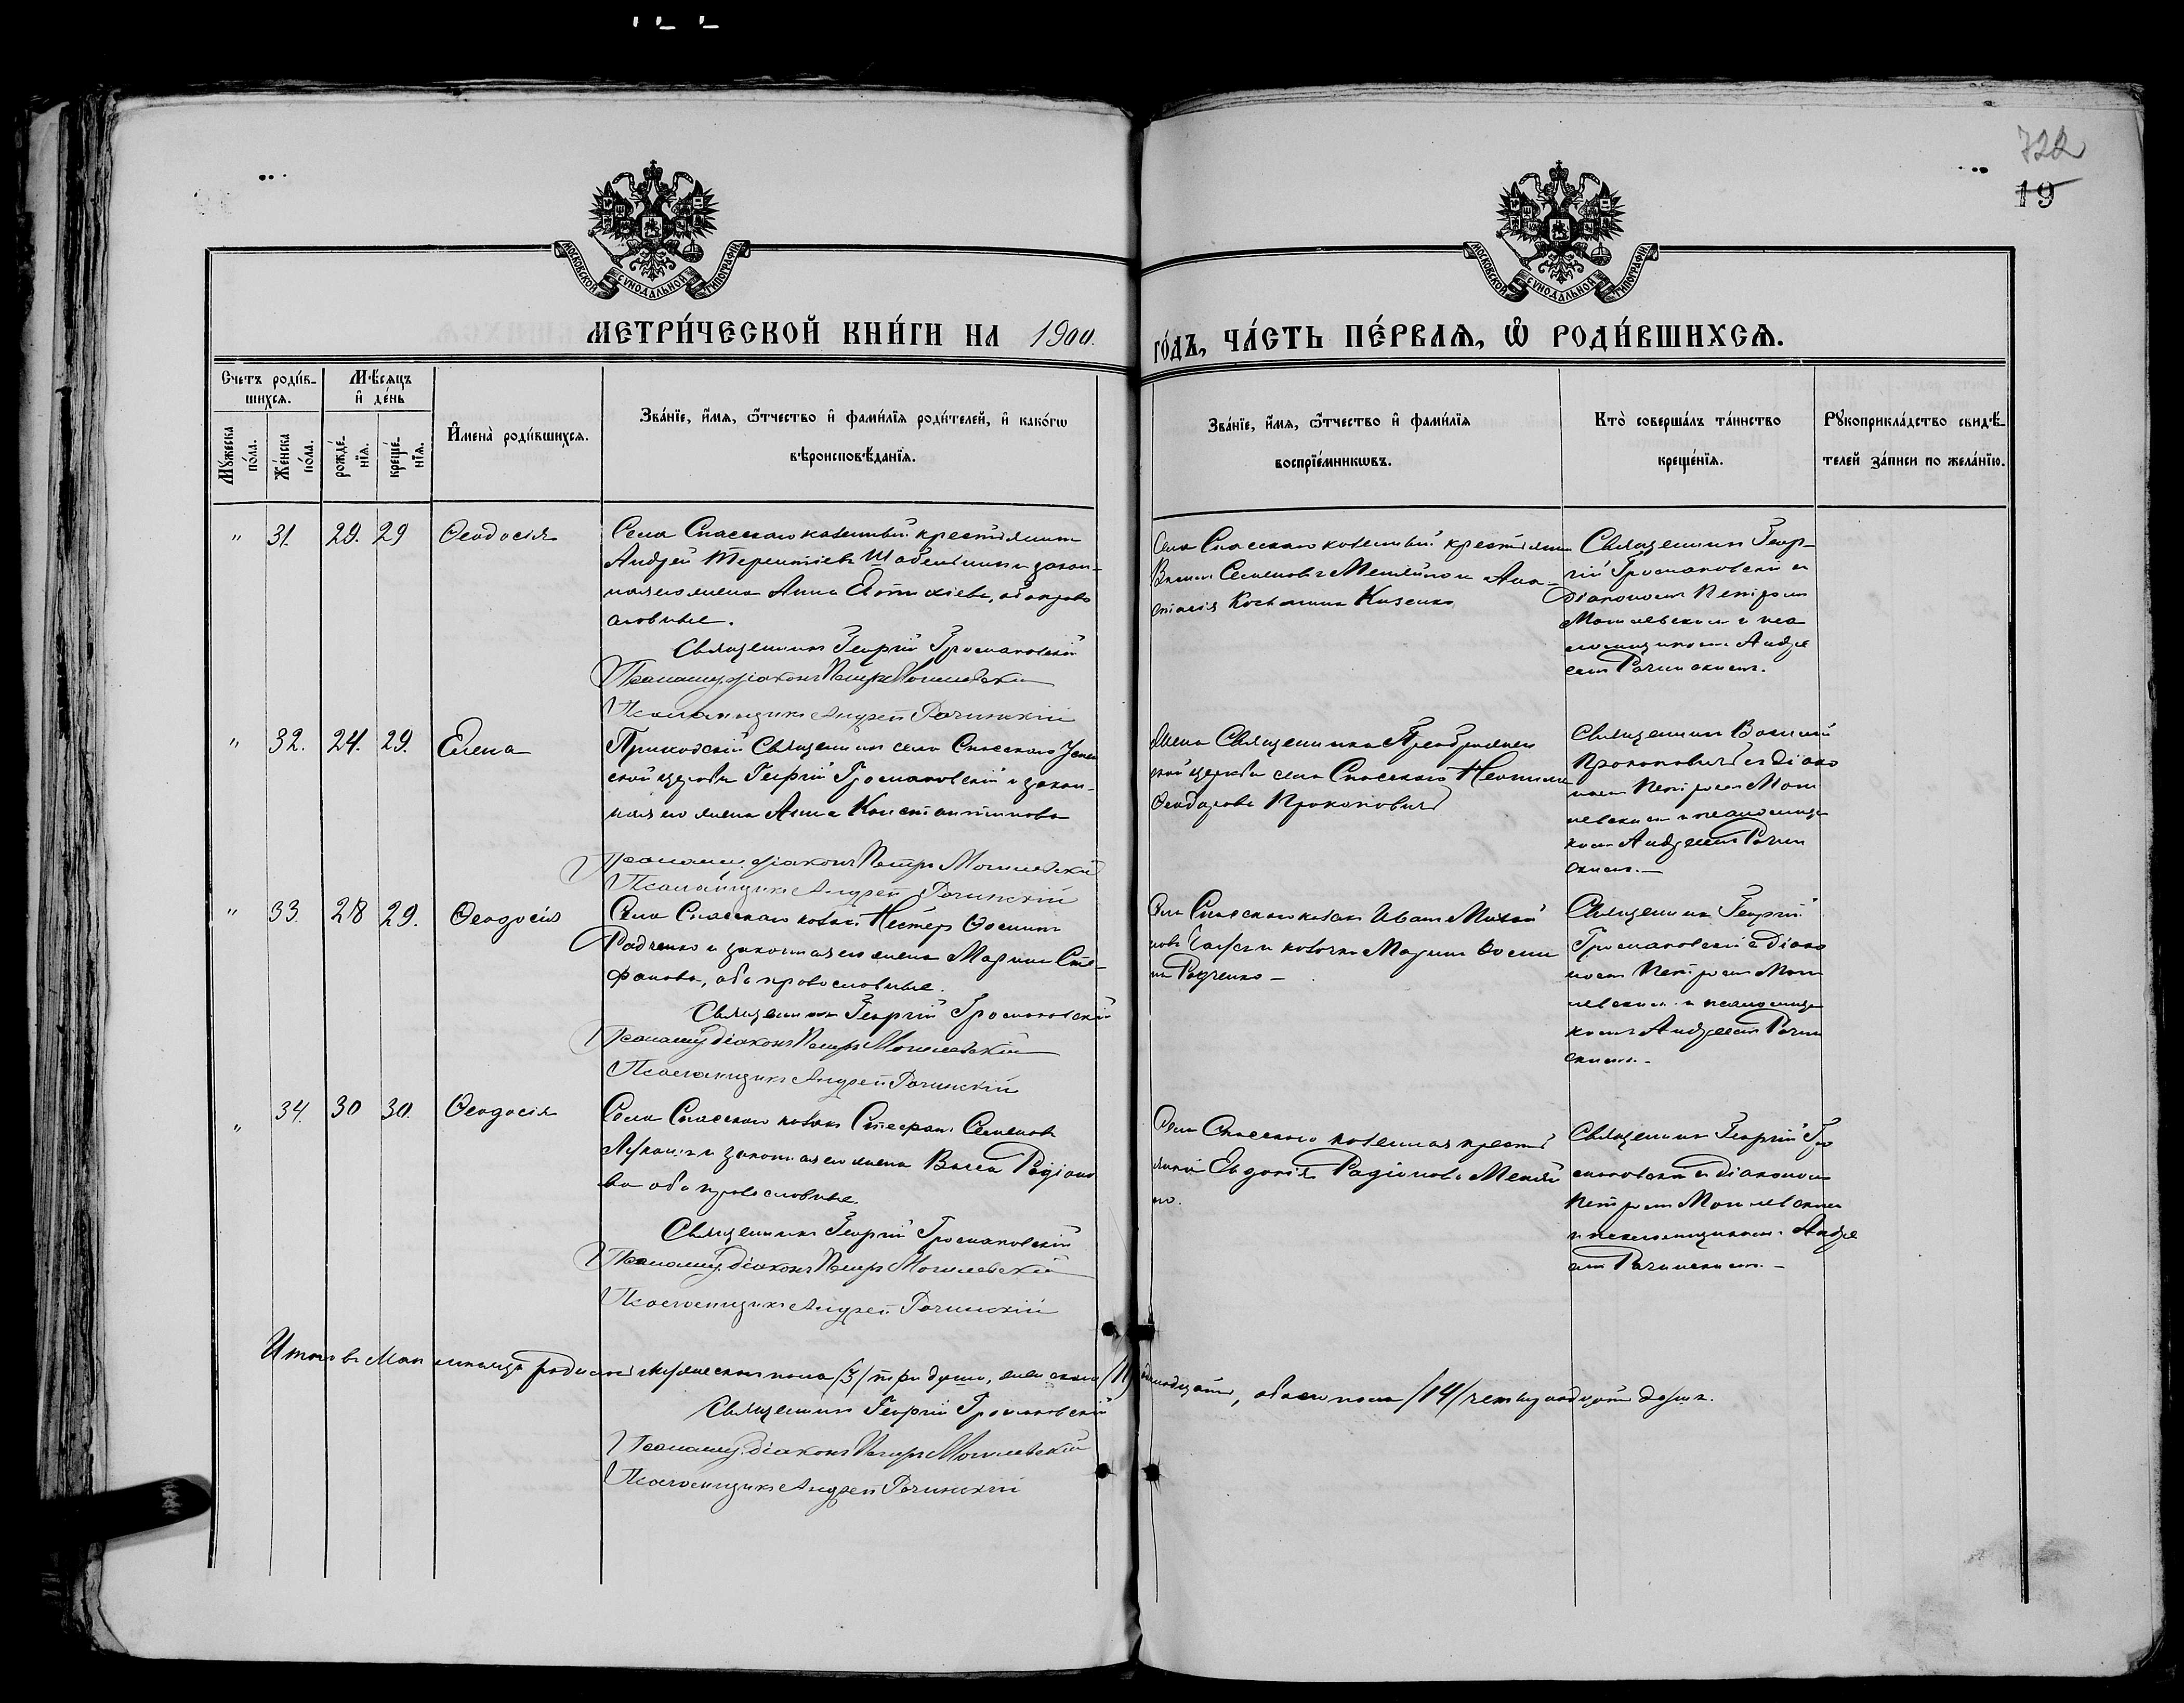 722
19
МОСКОВСКОЙ СѴНОДАЛЬНОЙ ТИПОГРАФІИ
МОСКОВСКОЙ СѴНОДАЛЬНОЙ ТИПОГРАФІИ
МЕТРИ́ЧЕСКОЙ КНИ́ГИ НА 1900.
ГО́ДЪ, ЧА́СТЬ ПЕ́РВАѦ, Ѽ РОДИ́ВШИХСѦ.
Счетъ роди́в-
шихсѧ.
Мѣ́сѧцъ
и҆ де́нь
Мꙋ́жеска по́ла.
Же́нска по́ла.
рожде́-нїѧ.
креще́-нїѧ.
И҆мена̀ роди́вшихсѧ.
Зва́нїе, и҆́мѧ, ѻ҆́тчество и҆ фами́лїѧ роди́телей, и҆ како́гѡ
вѣроисповѣ́данїѧ.
Зва́нїе, и҆́мѧ, ѻ҆́тчество и҆ фами́лїѧ
воспрїе́мникѡвъ.
Кто̀ соверша́лъ та́инство
креще́нїѧ.
Рꙋкоприкла́дство свидѣ́-
телей за́писи по жела́нїю.
" 31. 29. 29 Ѳеодосія
Села Спасскаго казенный крестьянинъ
Андрей Терентіевъ и закон-
ная его жена Анна, оба право
славные.
Священникъ Георгій Громаковскій
Псаломщ. діаконъ Петръ Могилевскій
Псаломщикъ Андрей Рачинскій
Села Спасскаго казенный крестьянин
Семеновъ и Ана-
стасія Косьмина
Священникъ Геор-
гій Громаковскій съ
діакономъ Петромъ
Могилевскимъ и пса
ломщикомъ Андре
емъ Рачинскимъ.
" 32. 24. 29. Елена
Приходскій Священникъ села Спасскаго
ской церкви Георгій Громаковскій и закон-
ная его жена Анна Константинова
Псаломщ. діаконъ Петръ Могилевскій
Псаломщикъ Андрей Рачинскій
Жена Священника Преображен
ской церкви села Спасскаго
Ѳеодорова Прокоповичъ
Священникъ Василій
Прокоповичъ съ діако
номъ Петромъ Моги
левскимъ и псаломщи
комъ Андреемъ Рачин
скимъ.—
" 33. 28 29. Ѳеодосія
Села Спасскаго козакъ Несторъ Ѳоминъ
Радченко и законная его жена Марина Сте-
фанова, оба православные.
Священникъ Георгій Громаковскій
Псаломщ. діаконъ Петръ Могилевскій
Псаломщикъ Андрей Рачинскій
Села Спасскаго козакъ Иванъ Михай
ловъ и козачка Марина Ѳоми
на Радченко —
Священникъ Георгій
Громаковскій съ діако
номъ Петромъ Моги
левскимъ и псаломщи
комъ Андреемъ Рачин
скимъ.—
" 34. 30 30. Ѳеодосія
Села Спасскаго козакъ Стефанъ Семеновъ
и законная его жена Васса Радіоно
ва оба православные.
Священникъ Георгій Громаковскій
Псаломщ. діаконъ Петръ Могилевскій
Псаломщикъ Андрей Рачинскій
Села Спасскаго казенная кресть
янка Евдокія Радіонова
Священникъ Георгій Гро
маковскій съ діакономъ
Петромъ Могилевскимъ
и псаломщикомъ Андре
емъ Рачинскимъ.—
Итого въ Маи мѣсяцѣ родилось мужескаго пола /3/ три души, женскаго /11/ одинадцать, обоего пола /14/ четырнадцать душъ.
Священникъ Георгій Громаковскій
Псаломщ. діаконъ Петръ Могилевскій
Псаломщикъ Андрей Рачинскій